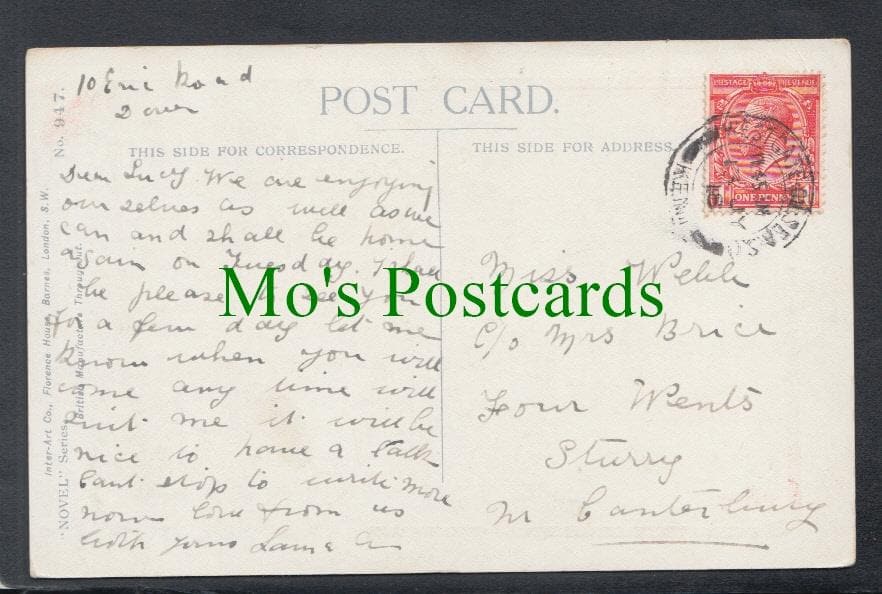 10 Eric Road
Dover
POST CARD.
THIS SIDE FOR CORRESPONDENCE.
THIS SIDE FOR ADDRESS.
Dear Lucy. We are enjoying
ourselves as well as we
can and shall be home
again on Tuesday. I shall
be pleased to see you
for a few days let me
know when you will
come any time will
suit me it will be
nice to have a talk
Cant stop to write more
now love from us
both yours
Miss Webb
C/o Mrs Brice
Four Wents
Sturry
Nr Canterbury
No. 947.
"NOVEL" Series
Inter-Art Co., Florence House, Barnes, London, S.W.
British Manufacture Throughout.
POSTAGE REVENUE
ONE PENNY
KENT
Mo's Postcards